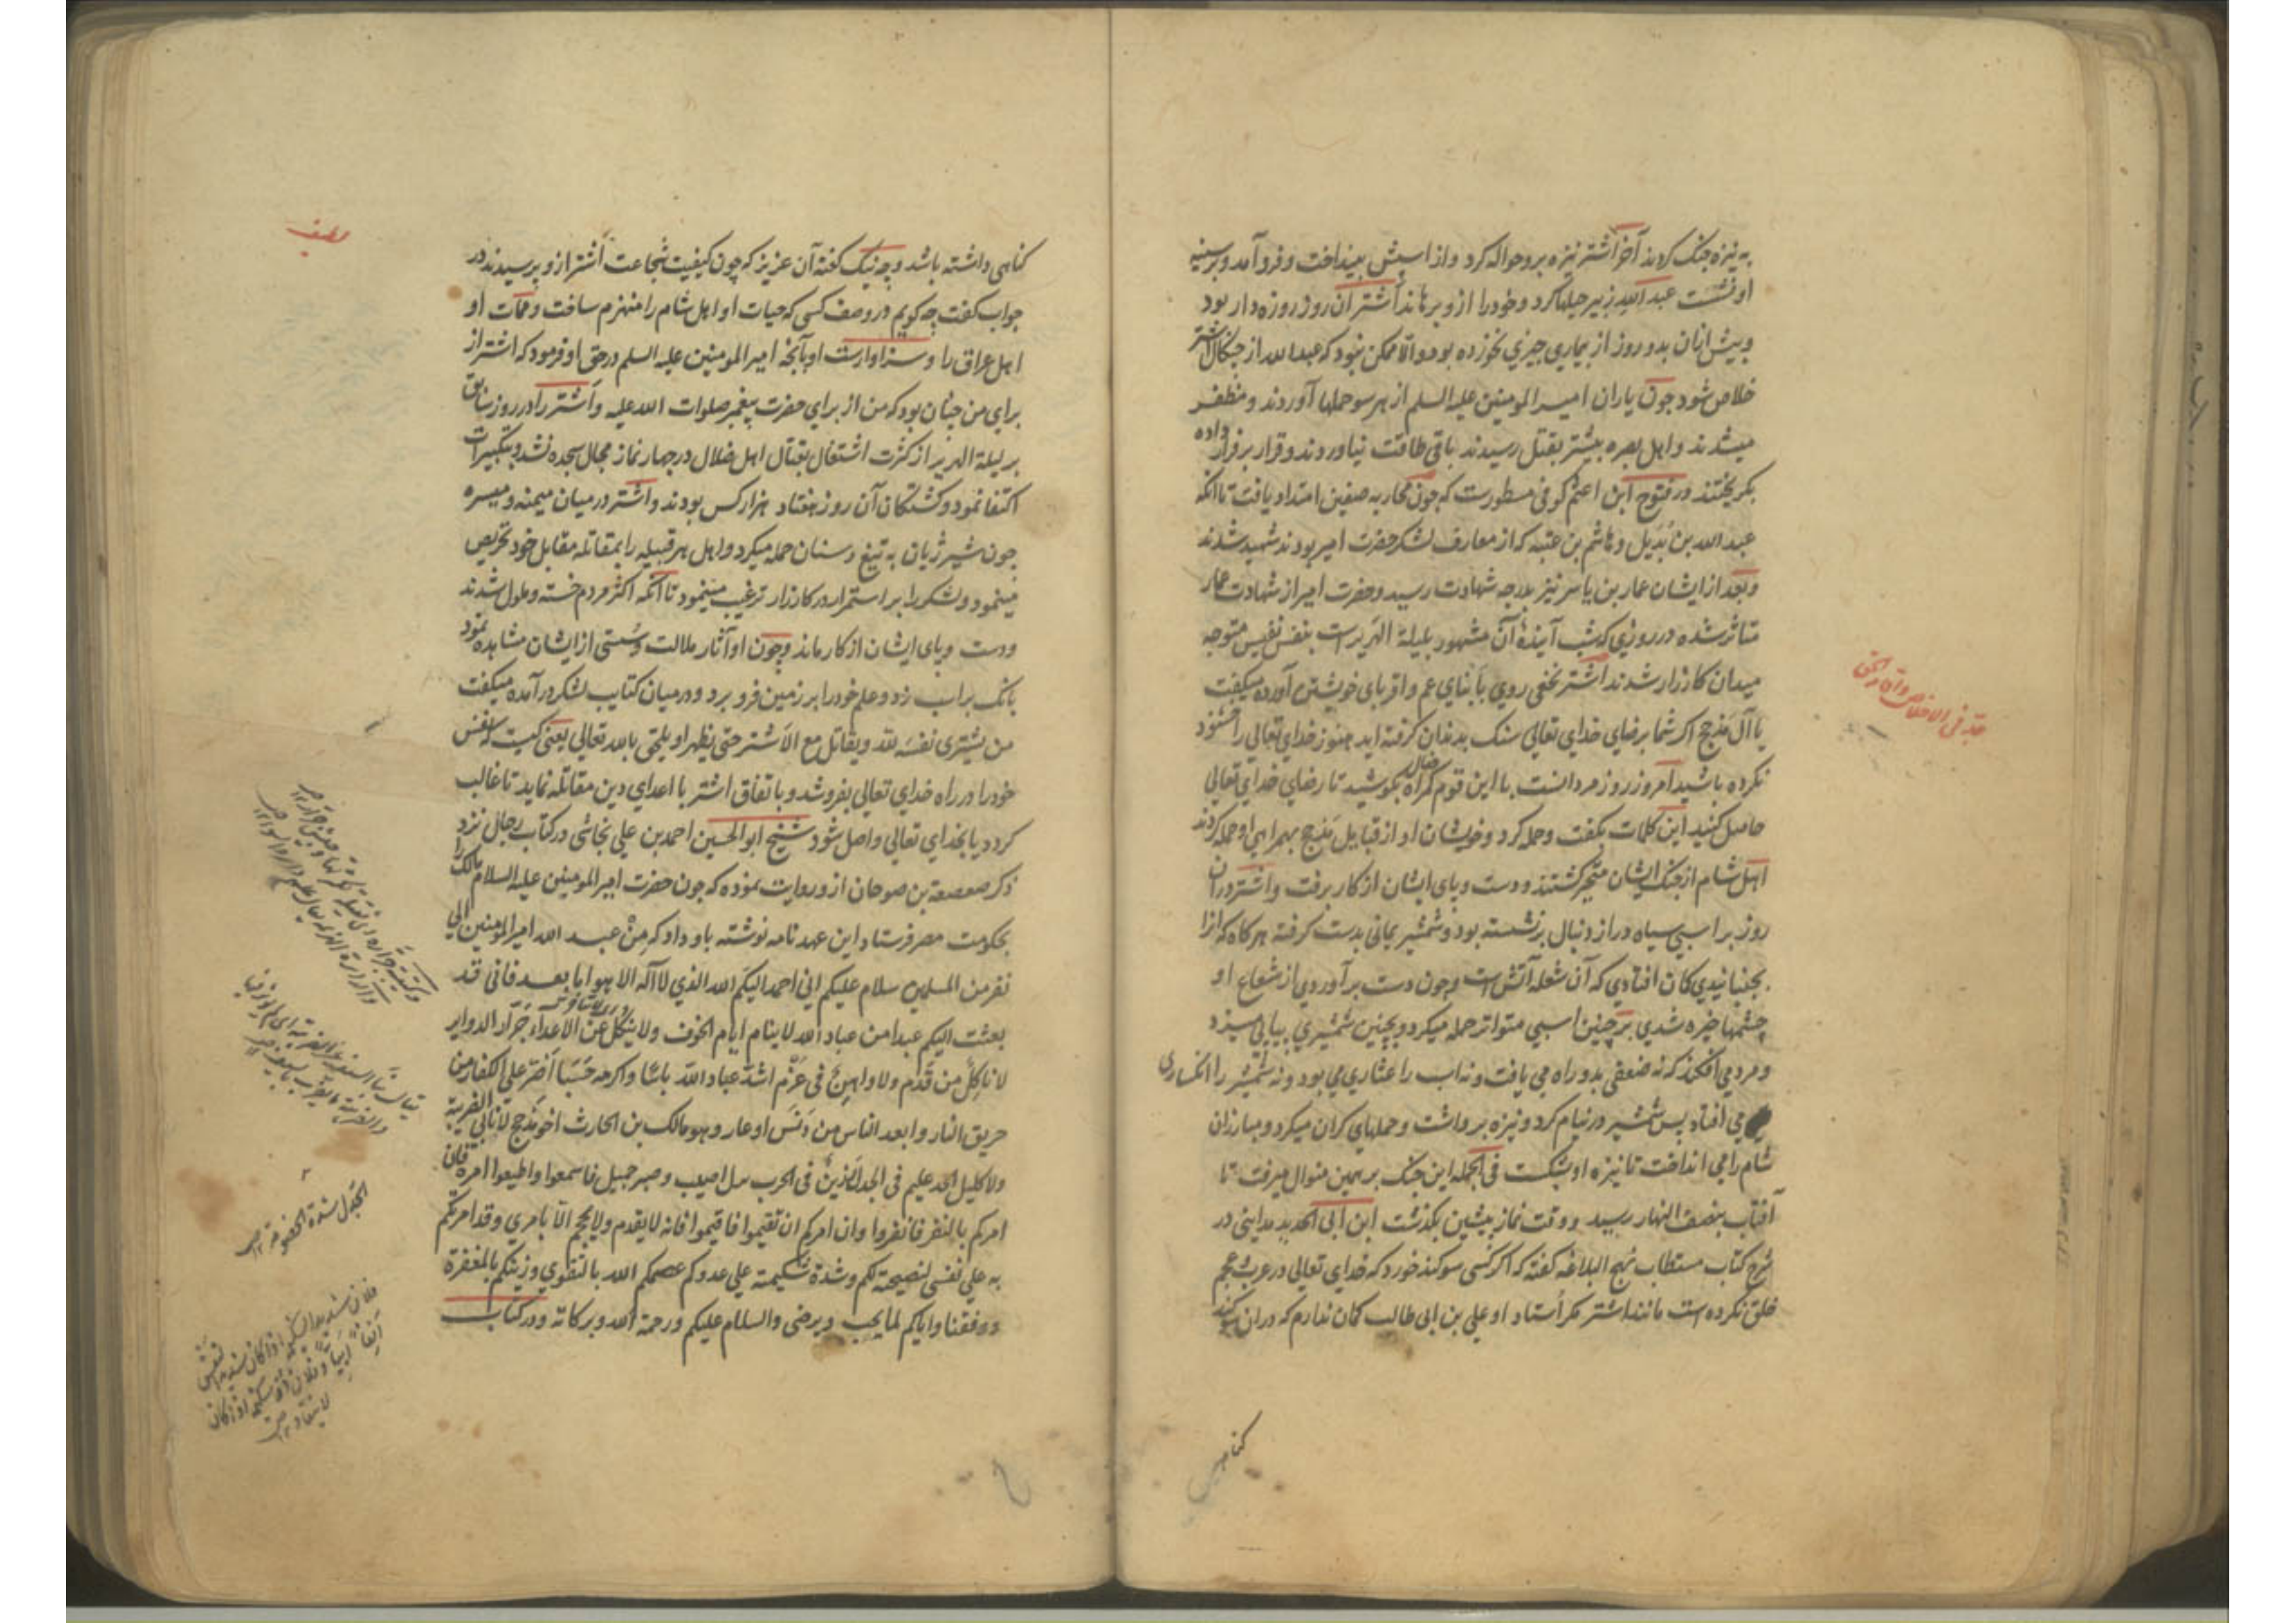 به نیزه جنک کردند آخر اشتر نیزه برو حواله کرد و از اسپش بینداخت و فرو آمد و بر سینهٔ
او نشست عبد الله زبیر حیلها کرد و خود را ازو برهاند اشتر آن روز روزه دار بود
و پیش ازان بدو روز از بیماری چیزی نخورده بود و الا ممکن نبود که عبد الله از چنکال اشتر
خلاص شود چون یاران امیر المومنین علیه السلم از هر سو حملها آوردند و مظفر
میشدند و اهل بصره بیشتر بقتل رسیدند باقی طاقت نیاوردند و قرار بر فرار داده
بکریختند در فتوح ابن اعثم کوفی مسطورست که چون محاربه صفین امتداد یافت تا انکه
عبد الله بن بُدَیل و هاشم بن عتبه که از معارف لشکر حضرت امیر بودند شهید شدند
و بعد از ایشان عمار بن یاسر نیز بدرجه شهادت رسید و حضرت امیر از شهادت عمار
متاثر شده در روزی که شب آیندهٔ آن مشهور بلیلة الهریرست بنفس نفیس متوجه
میدان کارزار شدند اشتر نخعی روی بابنای عم و اقربای خویشتن آورده میکفت
یا آل مَذحِج اکر شما برضای خدای تعالی سنک بدندان کرفته اید هنوز خدای تعالی را خشنود
نکرده باشید امروز روز مردانست با این قوم کمراه ضال بکوشید تا رضای خدای تعالی
حاصل کنید این کلمات بکفت و حمله کرد و خویشان او از قبایل مَذحِج بهمراهی او حمله کردند
اهل شام از جنک ایشان متحیر کشتند و دست و پای ایشان از کار برفت و اشتر دران
روز بر اسپی سیاه دراز دنبال برنشسته بود و شمشیر یمانی بدست کرفته هر کاه که آنرا
بجنبانیدی کان افتادی که آن شعله آتش است و چون دست برآوردی از شعاع او
چشمها خیره شدی بر چنین اسپی متواتر حمله میکرد و بچنین شمشیری پیاپی میزد
و مرد می افکند که نه ضعفی بدو راه می یافت و نه اب را عثاری می بود و نه شمشیر را انکساری
می افتاد پس شمشیر در نیام کرد و نیزه برداشت و حملهای کران میکرد و مبارزان
شام را می انداخت تا نیزه او بشکست فی الجمله این جنک برهمین منوال میرفت تا
آفتاب بنصف النهار رسید و وقت نماز پیشین بکذشت ابن ابی الحدید مداینی در
شرح کتاب مستطاب نهج البلاغه کفته که اکر کسی سوکند خورد که خدای تعالی در عرب و عجم
خلق نکرده است مانند اشتر مکر استاد او علی بن ابی طالب کمان ندارم که دران سوکند
کناهی
کناهی داشته باشد و چه نیک کفته آن عزیز که چون کیفیت شجاعت اشتر ازو پرسیدند در
جواب کفت چه کویم در وصف کسی که حیات او اهل شام را منهزم ساخت و ممات او
اهل عراق را و سزاوارست او بآنچه امیر المومنین علیه السلم در حق او فرمود که اشتر از
برای من چنان بود که من از برای حضرت پیغمبر صلوات الله علیه و اشتر را در روز سابق
بر لیلة الهریر از کثرت اشتغال بقتال اهل ضلال در چهار نماز مجال سجده نشد و بتکبیرات
اکتفا نمود و کشتکان آن روز هفتاد هزار کس بودند و اشتر در میان میمنه و میسره
چون شیر ژیان به تیغ و سنان حمله میکرد و اهل هر قبیله را بمقاتله مقابل خود تحریص
مینمود و لشکر را بر استمرار در کارزار ترغیب مینمود تا آنکه اکثر مردم خسته و ملول شدند
و دست و پای ایشان از کار ماند و چون او آثار ملالت و سستی از ایشان مشاهده نمود
بانک بر اسب زد و علم خود را بر زمین فرو برد و در میان کتایب لشکر درآمده میکفت
من یشتری نفسَه لله و یقاتل مع الاشتر حتی یظهر او یلحق بالله تعالی یعنی کیست که نفس
خود را در راه خدای تعالی بفروشد و باتفاق اشتر با اعدای دین مقاتله نماید تا غالب
کردد یا بخدای تعالی واصل شود شیخ ابو الحسین احمد بن علی نجاشی در کتاب رجال نزد
ذکر صعصعة بن صوحان ازو روایت نموده که چون حضرت امیر المومنین علیه السلام مالک را
بحکومت مصر فرستاد این عهد نامه نوشته باو داد که مِنْ عبد الله امیر المومنین الی
نفر من المسلمین سلام علیکم انی احمد الیکم الله الذی لا اله الا هو اما بعد فانی قد
بعثت الیکم عبدا من عباد الله لا ینام ایام الخوف و لا ینکل عن الاعداء حَرّاز الدوایر
لا ناکِلٌ من قَدَم و لا واهِنٌ فی عَزْم اشدّ عباد الله باسًا و اکرمه حَسَبًا اَضَرّ علی الکفار من
حریق النار و ابعد الناس من دَنَس او عار و هو مالک بن الحارث اخو مذحج لا نابی الضریبة
و لا کلیل الحد علیم فی الجد رزین فی الحرب سل اصیب و صبر جمیل فاسمعوا و اطیعوا امره فان
امرکم بالنفر فانفروا و ان امرکم ان تقیموا فاقیموا فانه لا یقدم و لا یحجم الا بامری و قد امرتکم
به علی نفسی لنصیحته لکم و شدة شکیمته علی عدوکم عصمکم الله بالتقوی و زینکم بالمغفرة
و وفقنا و ایاکم لما یحب و یرضی و السلام علیکم و رحمة الله و برکاته و در کتاب